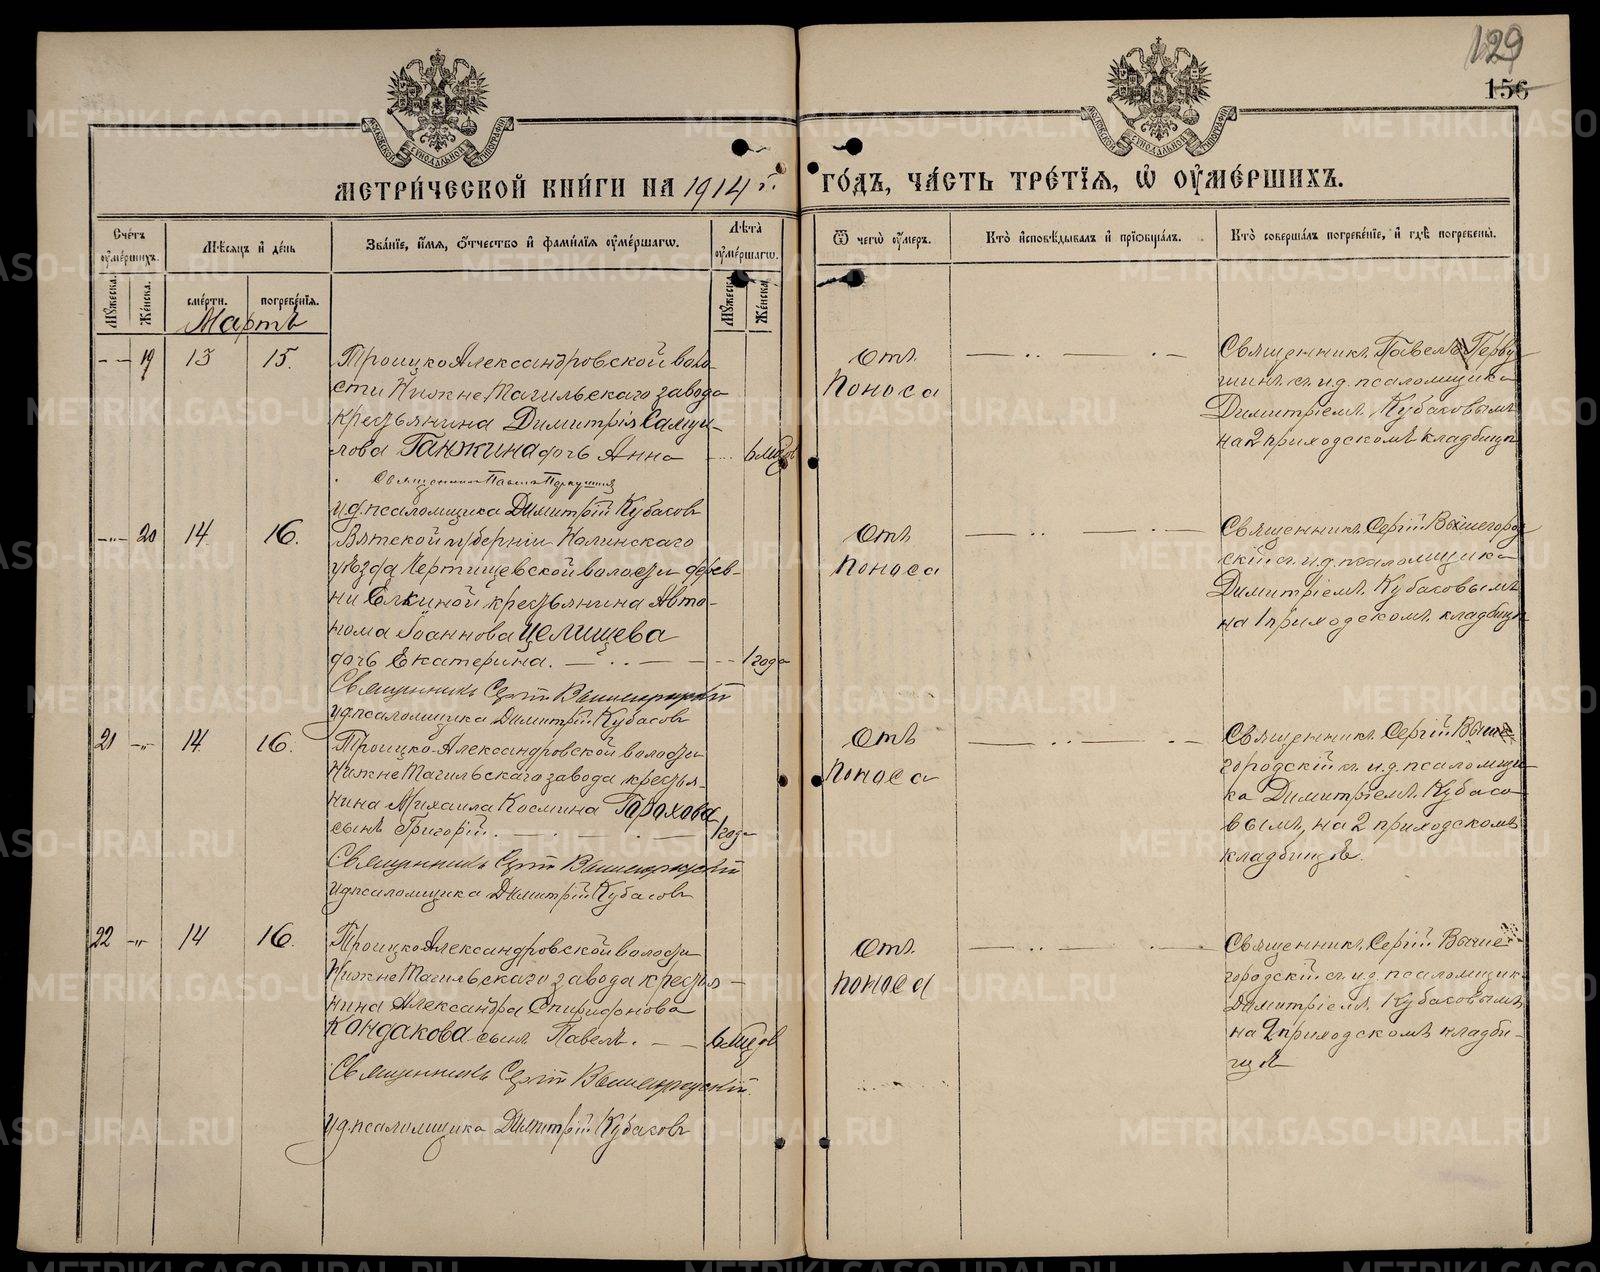 129
156
МЕТРИ́ЧЕСКОЙ КНИ́ГИ НА 1914 г. ГО́ДЪ, ЧА́СТЬ ТРЕ́ТІЯ, Ѡ ОУМЕ́РШИХЪ.
Сче́тъ оуме́ршихъ.
Мѣсяцъ и день
Зва́ніе, и́мя, о́тчество и фами́лія оуме́ршагѡ.
Лѣта оуме́ршагѡ.
Ѿ чегѡ оу́меръ.
Кто̀ и҆сповѣ́дывалъ и҆ прїѡбща́лъ.
Кто̀ соверша́лъ погребе́ніе, и҆ гдѣ̀ погребены̀.
Мꙋжеска.
Же́нска.
сме́рти.
погребе́нія.
Мꙋжеска.
Же́нска.
Мартъ
19 13 15.
Троицко Александровской воло-
сти Нижне Тагильскаго завода
крестьянина Димитрія Самуи-
лова Ганжина дочь Анна 6 мцов
Священникъ Павелъ
и.д. псаломщика Димитрій Кубасовъ
Отъ
поноса
Священникъ Павелъ
шинъ съ и.д. псаломщика
Димитріемъ Кубасовымъ
на 2 приходскомъ кладбищѣ
20 14 16.
Вятской губерніи Нолинскаго
уѣзда Чертищевской волости дерев-
ни Елкиной крестьянина Авто-
нома Іоаннова Целищева
дочь Екатерина. 1 года
Священникъ Сергій Вышегородскій
и.д. псаломщика Димитрій Кубасовъ
Отъ
поноса
Священникъ Сергій Вышегород-
скій съ и.д. псаломщика
Димитріемъ Кубасовымъ
на 1 приходскомъ кладбищѣ
21 14 16.
Троицко-Александровской волости
Нижне Тагильскаго завода крестья-
нина Михаила Космина Горохова
сынъ Григорій. 1 года
Священникъ Сергій Вышегородскій
и.д. псаломщика Димитрій Кубасовъ
Отъ
поноса
Священникъ Сергій Выше-
городскій съ и.д. псаломщи-
ка Димитріемъ Кубасо-
вымъ, на 2 приходскомъ
кладбищѣ.
22 14 16.
Троицко Александровской волости
Нижне Тагильскаго завода крестья-
нина Александра Спиридонова
Кондакова сынъ Павелъ. 6 мцов
Священникъ Сергій Вышегородскій
и.д. псаломщика Димитрій Кубасовъ
Отъ
поноса
Священникъ Сергій Выше-
городскій съ и.д. псаломщик
Димитріемъ Кубасовымъ
на 2 приходскомъ кладби-
щѣ